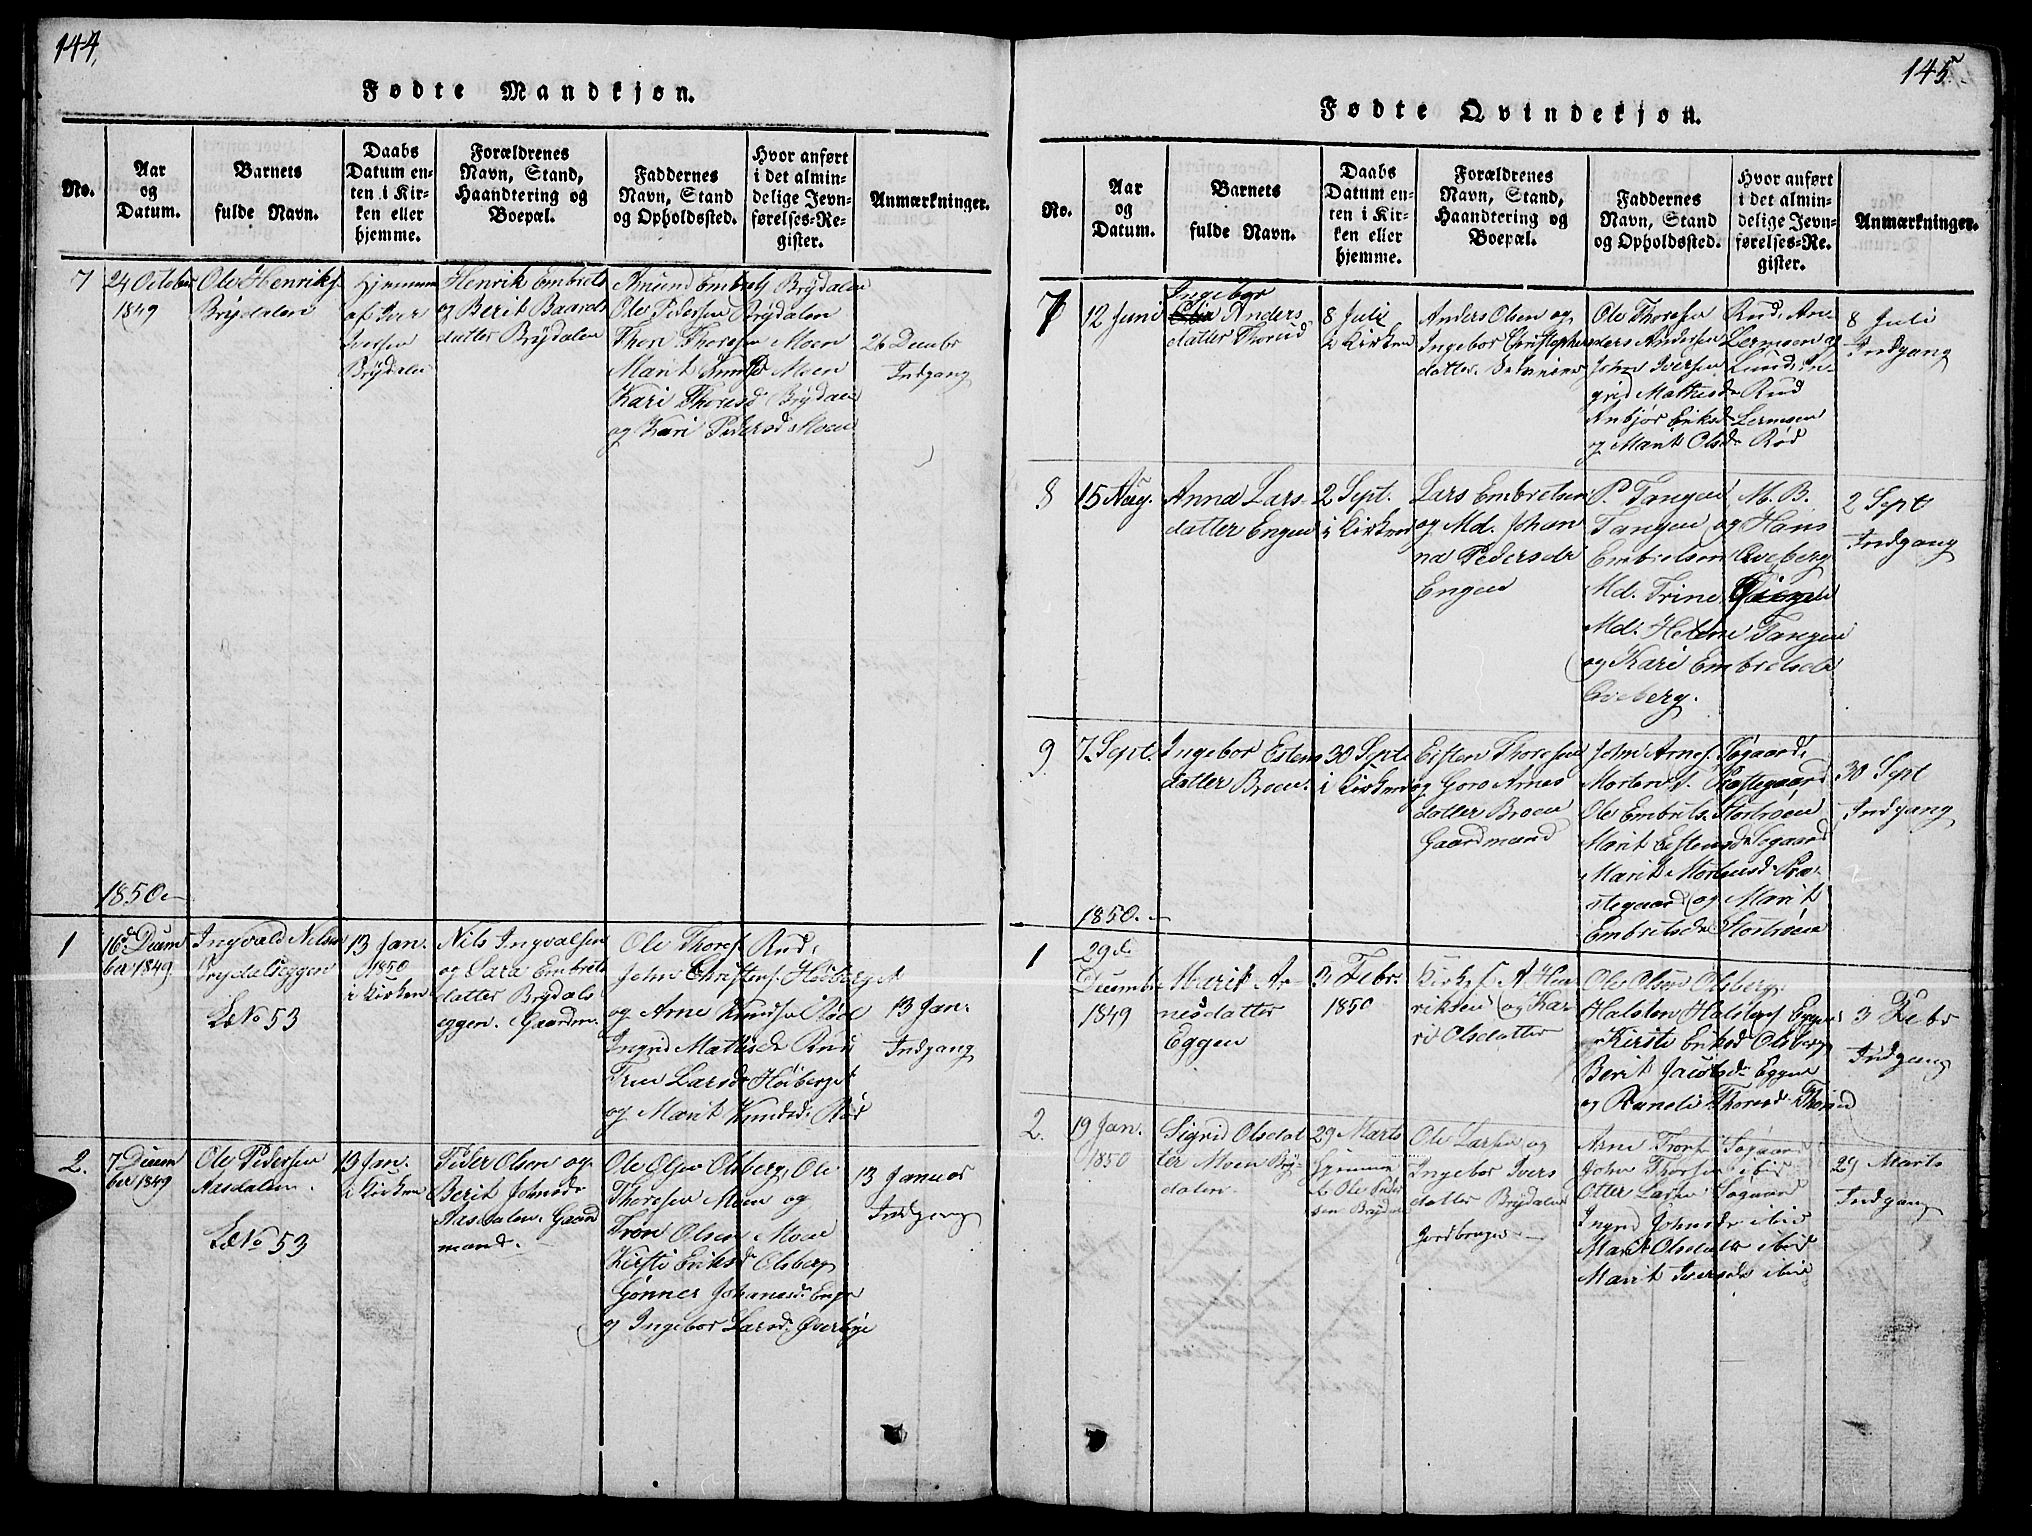 144.
Fødte Mandkjøn.
No.
Aar
og
Datum.
Barnets
fulde Navn.
Daabs
Datum en-
ten i Kir-
ken eller
hjemme.
Forældrenes
Navn, Stand,
Haandtering og
Boepæl.
Faddernes
Navn, Stand
og Opholdssted.
Hvor anført
i det almin-
delige Jevn-
førelses-Re-
gister.
Anmærkninger.
7
24 October
1849
Ole Henriks.
Brydalen
Hjemme
af Iver
Iversen
Brydalen
Henrik Embrets
og Berit Baards
datter Brydalen
Amund Embrets Brydalen
Ole Pedersen Brydalen
Thore Thoresen Moen
Marit Knudsd Moen
Kari Thoresd Brydalen
og Kari Pedersd Moen
26 Decembr
Indgang
1850
1
16d Decem
ber 1849
Ingvald Nilsen
Brydalseggen
LNo 53
13 Jan.
1850
i Kirken
Nils Ingvalsen
og Sara Embrets
datter Brydals
eggen. Gaardm.
Ole Thores. Rud,
John Christens. Høiberget
og Arne Knudsen Rød
Ingrid Mathisdr Rud
Trine Larsdr Høiberget
og Marit Knudsd. Rød
13 Jan.
Indgang
2.
7 Decem
ber 1849
Ole Pedersen
Aasdalen.
LNo 53
13 Jan.
i Kirken
Peder Olsen og
Berit Johnsdr
Aasdalen. Gaard
mand.
Ole Olsen Olsberg, Ole
Thoresen Moen og
Tron Olsen Moen
Kirsti Eriksd Olsberg
Gønner Johanesdr Engen
og Ingebor Larsd. Øverbye
13 Januar
Indgang
145
Fødte Qvindekjøn.
No.
Aar
og
Datum.
Barnets
fulde Navn.
Daabs
Datum en-
ten i Kir-
ken eller
hjemme.
Forældrenes
Navn, Stand,
Haandtering og
Boepæl.
Faddernes
Navn, Stand
og Opholdssted.
Hvor anført
i det almin-
delige Jevn-
førelses-Re-
gister.
Anmærkninger.
7
12 Juni
Ingebor
Anders
datter Thorud
8 Juli
i Kirken
Anders Olsen og
Ingebor Christophers
datter
Ole Thoresen Rud, An-
ders Andersen Lermoen og
John Iversen Lund, In-
grid Mathisdr Rud
Anbjør Eriksdr Lermoen
og Marit Olsdr Rød
8 Juli
Indgang
8
15 Aug.
Anna Lars-
datter Engen
2 Sept.
i Kirken
Lars Embretsen
og Md. Johan
na Pedersdr
Engen
P. Tangen M. B.
Tangen og Hans
Embretsen Qveberg
Md. Trine Engen
Md. Helene Tangen
og Kari Embretsdr
Qveberg.
2 Sept
Indgang
9.
7 Sept.
Ingebor Estens
datter Broen.
30 Sept
i Kirken
Eisten Thoresen
og Goro Arnes
datter Broen
Gaardmand
John Arnes. Søgaard,
Morten T. Præstegaard
Ole Embrets. Stortrøen
Marit Eistensdr Søgaard
Marit Mortensd. Præ-
stegaard og Marit
Embretsdr Stortrøen
30 Sept
Indgang
1850.
1
29 d.
Decembr
1849
Marit Ar-
nesdatter
Eggen
3 Febr.
1850
Kirks. A. Hen
riksen og Ka-
ri Olsdatter
Ole Olsen Olsberg,
Halsten Halstens Eggen
Kirsti Eriksd Olsberg
Berit Jacobsdr Eggen
og Raneli Thoresd. Thorud
3 Febr
Indgang
2.
19 Jan.
1850
Sigrid Olsdat
ter Moen Bry-
dalen.
29 Marts
hjemme
af Ole Peder
sen Brydal
Ole Larsen og
Ingebor Ivers
datter Brydalen
Jordbruger
Arne Tronsen Søgaard
John Thorsen ibid
Otter Larsen Søgaard
Ingrid Johnsdr ibid
Marit Olsdatter ibid
Marit Iversdr ibid
29 Marts
Indgang